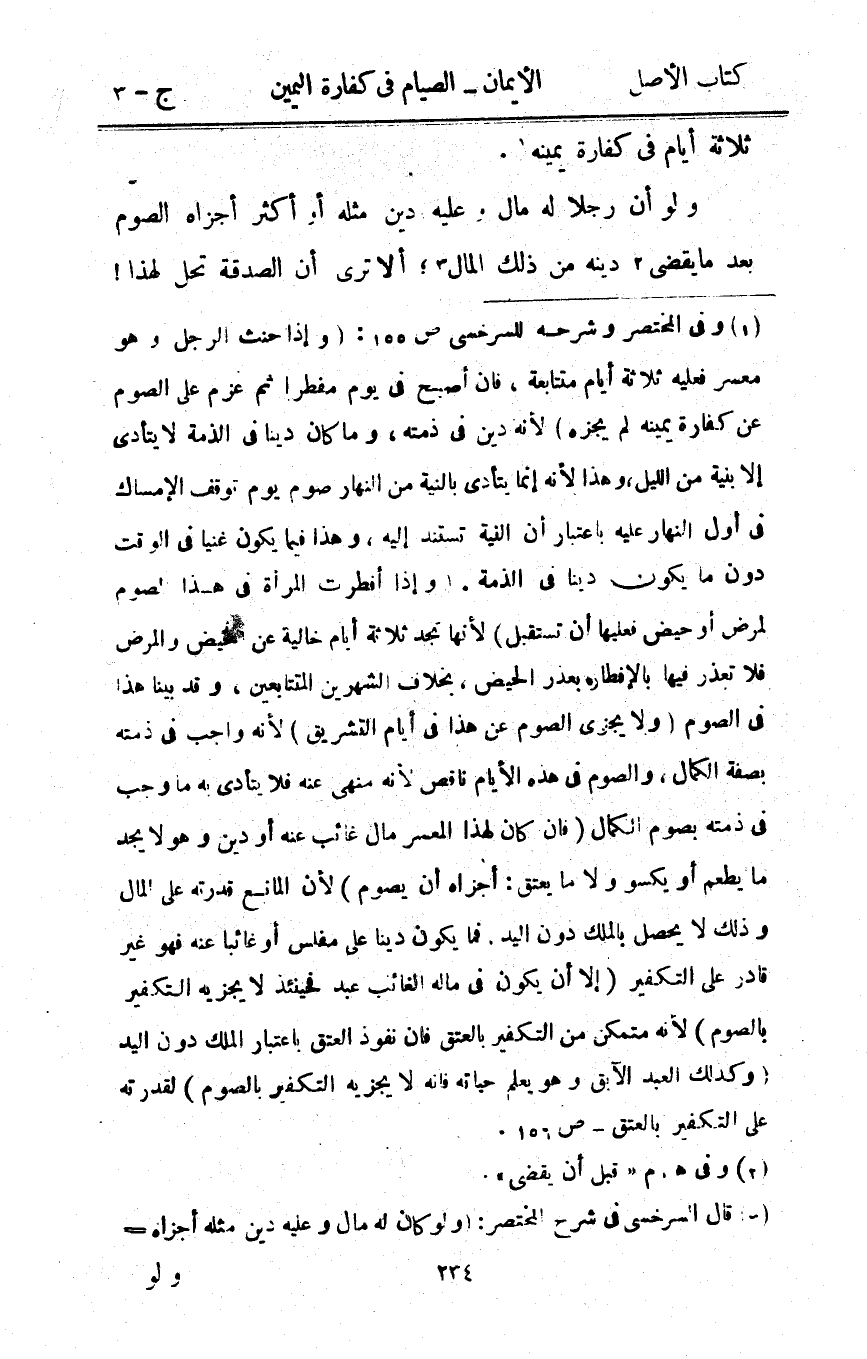 كتاب الأصل الأيمان ـ الصيام فى كفارة اليمين ج - ٣
ثلاثة أيام فى كفارة يمينه ١ .
و لو أن رجلا له مال و عليه دين مثله أو أكثر أجزاه الصوم
بعد مايقضى ٢ دينه من ذلك المال ٣ ؛ ألا ترى أن الصدقة تحل لهذا !
(١) و فى المختصر و شرحه للسرخسى ص ١٥٥ : ( و إذا حنث الرجل و هو
معسر فعليه ثلاثة أيام متتابعة ، فان أصبح فى يوم مفطرا ثم عزم على الصوم
عن كفارة يمينه لم يجزه ) لأنه دين فى ذمته ، و ما كان دينا فى الذمة لا يتأدى
إلا بنية من الليل ، و هذا لأنه إنما يتأدى بالنية من النهار صوم يوم توقف الإمساك
فى أول النهار عليه باعتبار أن النية تستند إليه ، و هذا فيما يكون غنيا فى الوقت
دون ما يكون دينا فى الذمة . ( و إذا أفطرت المرأة فى هذا الصوم
لمرض أو حيض فعليها أن تستقبل ) لأنها تجد ثلاثة أيام خالية عن الحيض و المرض
فلا تعذر فيها بالإفطار بعذر الحيض ، بخلاف الشهرين المتتابعين ، و قد بينا هذا
فى الصوم ( ولا يجزى الصوم عن هذا فى أيام التشريق ) لأنه واجب فى ذمته
بصفة الكمال ، والصوم فى هذه الأيام ناقص لأنه منهى عنه فلا يتأدى به ما وجب
فى ذمته بصوم الكمال ( فان كان لهذا المعسر مال غائب عنه أو دين و هو لا يجد
ما يطعم أو يكسو و لا ما يعتق : أجزاه أن يصوم ) لأن المانع قدرته على المال
و ذلك لا يحصل بالملك دون اليد . فما يكون دينا على مفلس أو غائبا عنه فهو غير
قادر على التكفير ( إلا أن يكون فى ماله الغائب عبد فحينئذ لا يجزيه التكفير
بالصوم ) لأنه متمكن من التكفير بالعتق فان نفوذ العتق باعتبار الملك دون اليد
( وكذلك العبد الآبق و هو يعلم حياته فانه لا يجزيه التكفير بالصوم ) لقدرته
على التكفير بالعتق ـ ص ١٥٦ .
(٢) و فى ه ، م « قبل أن يقضى » .
(٣) قال السرخسى فى شرح المختصر : ( و لو كان له مال و عليه دين مثله أجزاه =
٢٣٤ و لو